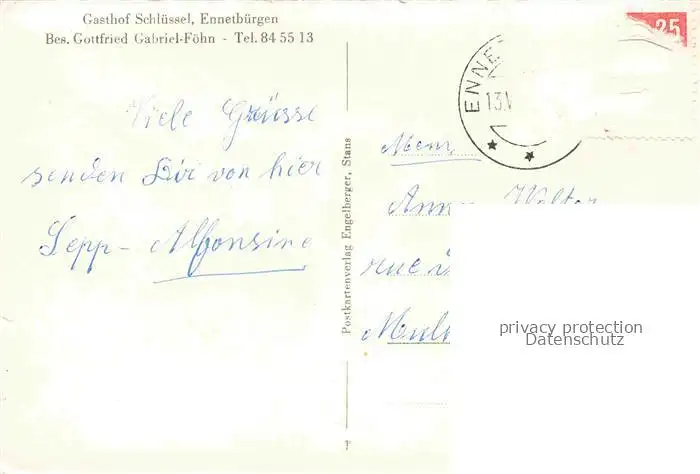 Gasthof Schlüssel, Ennetbürgen
Bes. Gottfried Gabriel-Föhn - Tel. 84 55 13
Viele Grüsse
senden Dir von hier
Sepp - Alfonsine
Postkartenverlag Engelberger, Stans
25
ENNE
13.
Walter
rue
privacy protection
Datenschutz